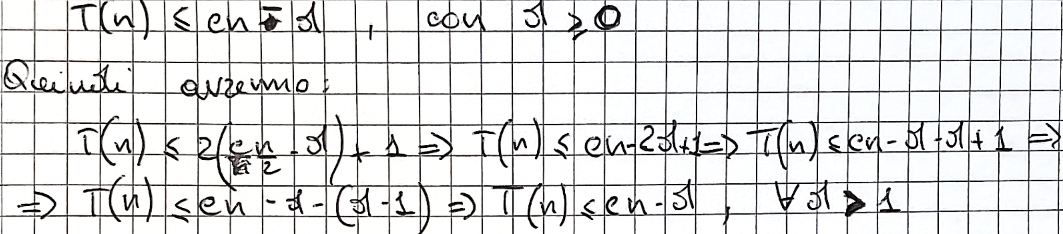 T(n) ≤ cn - d , con d ≥ 0
Quindi avremo:
T(n) ≤ 2(cn/2 - d) + 1 ⇒ T(n) ≤ cn-2d+1 ⇒ T(n) ≤ cn - d - d + 1 ⇒
⇒ T(n) ≤ cn - d - (d - 1) ⇒ T(n) ≤ cn - d , ∀ d > 1